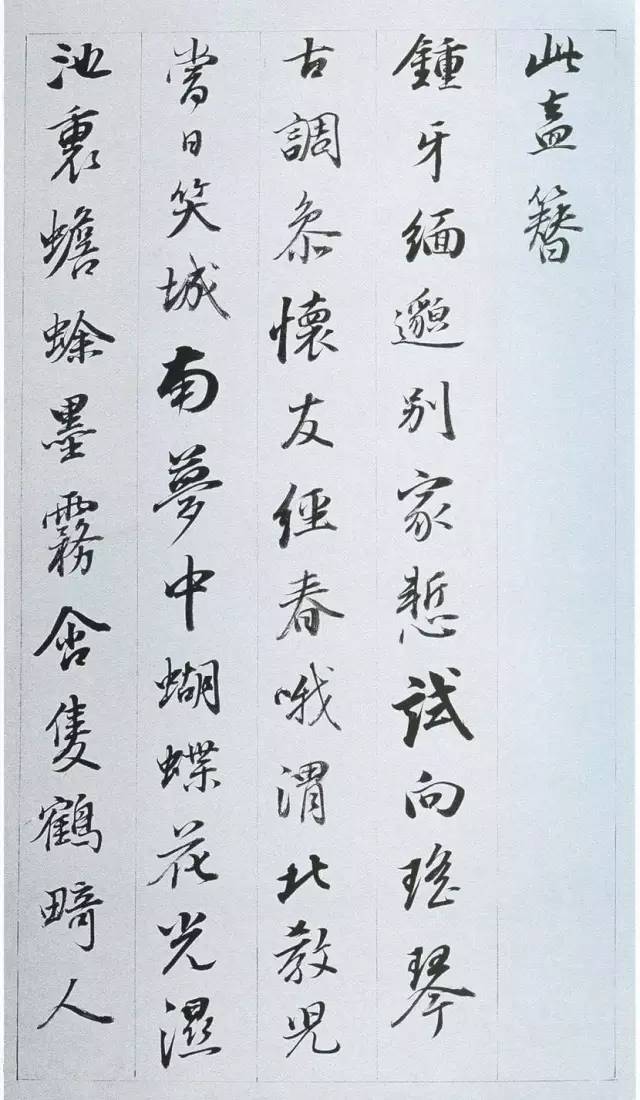 此盍簪
鍾牙緬邈別家慙試向瑤琴
古調參懷友經春哦渭北教兒
當日笑城南夢中蝴蝶花光濕
池裏蟾蜍墨霧含隻鶴畸人